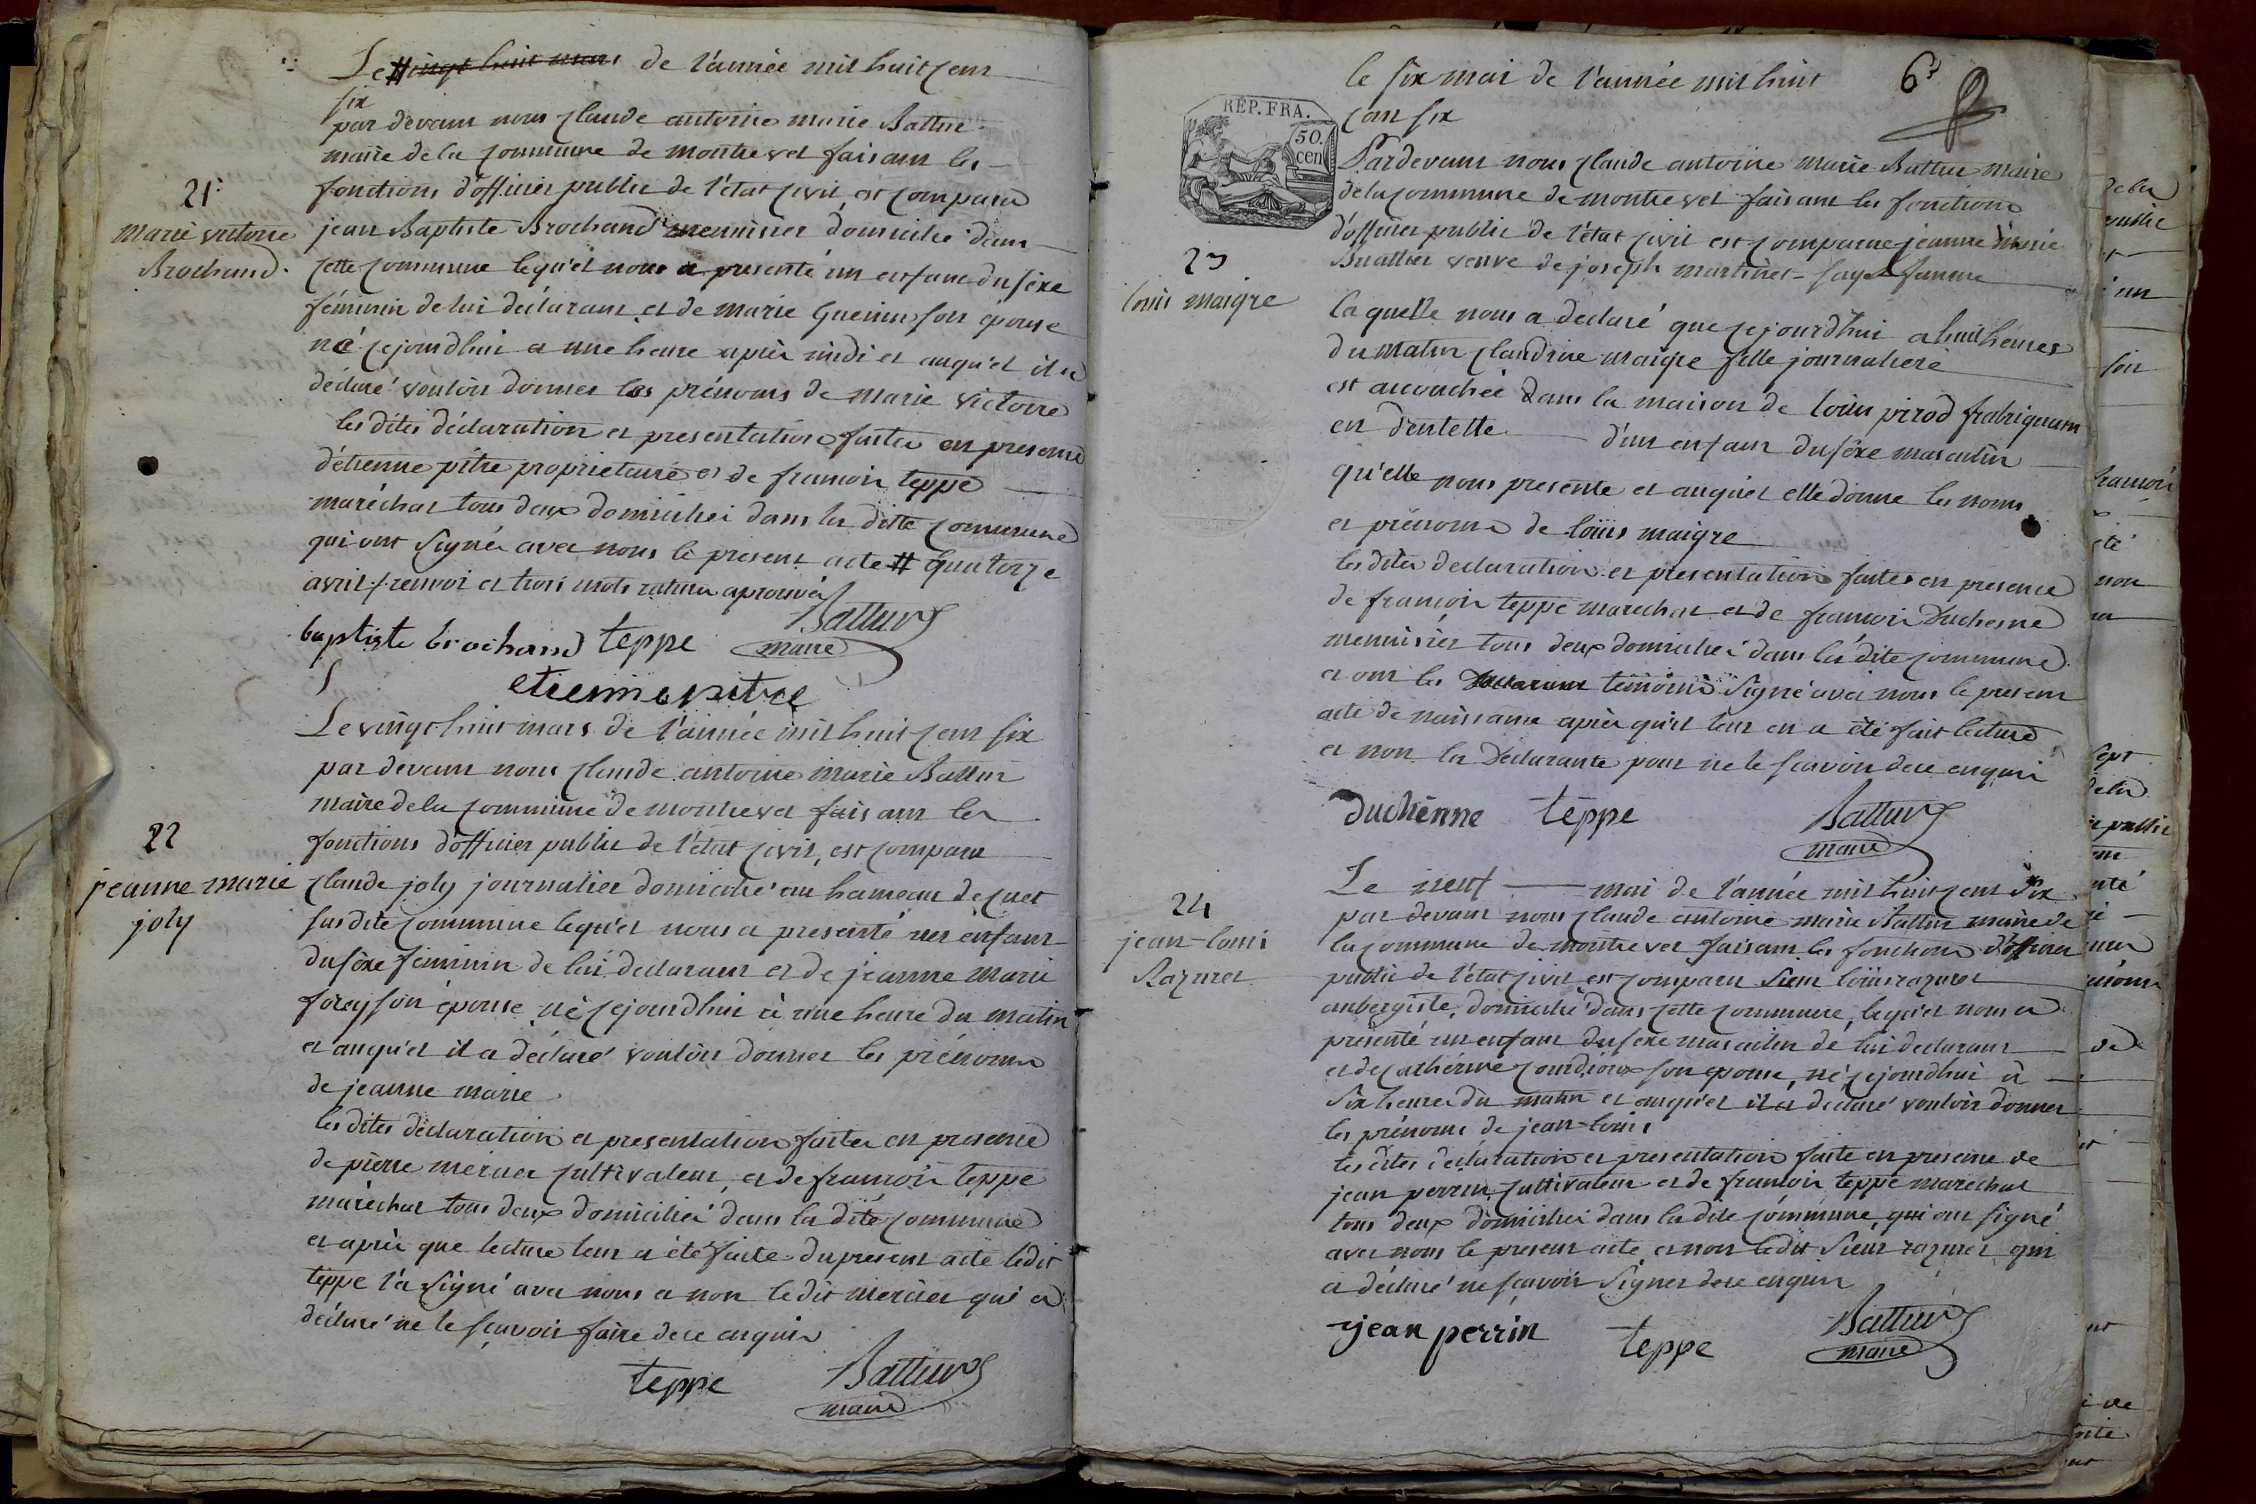 Le # vingt huit mars de l'année mil huit cent
six
par devant nous claude antoine marie Battur
maire de la commune de montrevel faisant les
fonctions d'officier public de l'état civil, est comparu
21e
marie victoire
Brochand.
jean Baptiste Brochand menuisier domicilié dans
cette commune lequel nous a presenté un enfant du sexe
féminin de lui déclarant et de marie Guenin son épouse
né cejourdhui a une heure après midi et auquel il a
déclaré vouloir donner les prénoms de marie victoire
les dites déclaration et presentation faites en presence
d'étienne pitre proprietaire et de francois teppe
maréchal tous deux domiciliés dans la ditte commune
qui ont signés avec nous le present acte # quatorze
avril / renvoi et trois mots raturés aprouvés
baptiste brochand teppe Battur
maire
etienne pitre
Le vingt huit mars de l'année mil huit cent six
par devant nous claude antoine marie Battur
maire de la commune de montrevel faisant les
fonctions d'officier public de l'état civil, est comparu
22
jeanne marie
joly
claude joly journalier domicilié au hameau de cuet
susdite commune lequel nous a presenté un enfant
du sexe féminin de lui declarant et de jeanne marie
forey son épouse, né cejourdhui à une heure du matin
et auquel il a déclaré vouloir donner les prénoms
de jeanne marie
les dites déclaration et presentation faites en presence
de pierre mercier cultivateur, et de francois teppe
maréchal tous deux domiciliés dans la dite commune
et après que lecture leur a été faite du present acte ledit
teppe l'a signé avec nous et non ledit mercier qui a
déclaré ne le scavoir faire de ce enquis
teppe Battur
maire
le six mai de l'année mil huit
6e
cent six
RÉP. FRA.
50.
cen
Pardevant nous claude antoine marie Battur maire
de la commune de montrevel faisant les fonctions
d'officier public de l'état civil est comparue jeanne marie
Buattier veuve de joseph martinet sage femme
23
louis maigre
la quelle nous a declaré que cejourdhui a huit heures
du matin claudine maigre fille journaliere
est accouchée dans la maison de louis pirod frabriquant
en dentelle d'un enfant du sexe masculin
qu'elle nous presente et auquel elle donne les noms
et prénoms de louis maigre
les dites declaration et presentation faites en presence
de francois teppe marechal et de francois Duchesne
menuisier tous deux domiciliés dans la dite commune
et ont les temoins signé avec nous le present
acte de naissance après qu'il leur en a été fait lecture
et non la Déclarante pour ne le scavoir de ce enquis
duchênne teppe Battur
maire
24
jean-louis
Razurel
Le neuf mai de l'année mil huit cent six
par devant nous claude antoine marie Battur maire de
la commune de montrevel faisant les fonctions d'officier
public de l'état civil est comparu sieur louis razurel
aubergiste, domicilié dans cette commune, lequel nous a
présenté un enfant du sexe masculin de lui declarant
et de catherine son épouse, né cejourdhui à
six heures du matin et auquel il a declaré vouloir donner
les prénoms de jean-louis
les dites déclaration et presentation faite en presence de
jean perrin cultivateur et de francois teppe marechal
tous deux domiciliés dans la dite commune, qui ont signé
avec nous le present acte et non ledit sieur razurel qui
a déclaré ne scavoir signer de ce enquis
jean perrin teppe Battur
maire